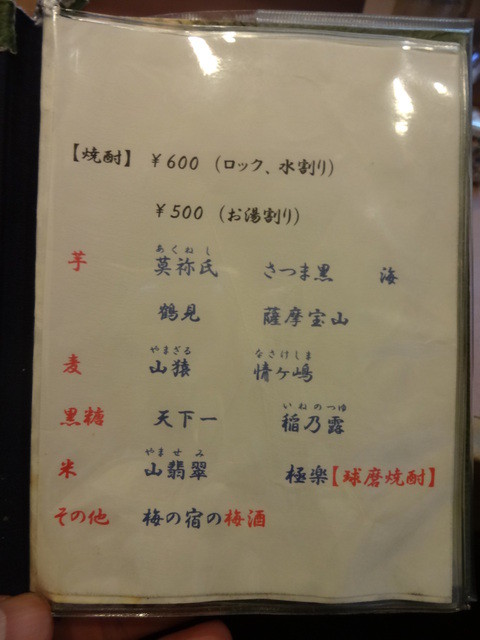 【焼酎】 ¥600 (ロック、水割り)
¥500 (お湯割り)
あくねし
芋 莫祢氏 さつま黒 海
鶴見 薩摩宝山
やまざる なさけしま
麦 山猿 情ヶ嶋
いねのつゆ
黒糖 天下一 稲乃露
やませみ
米 山翡翠 極楽【球磨焼酎】
その他 梅の宿の梅酒